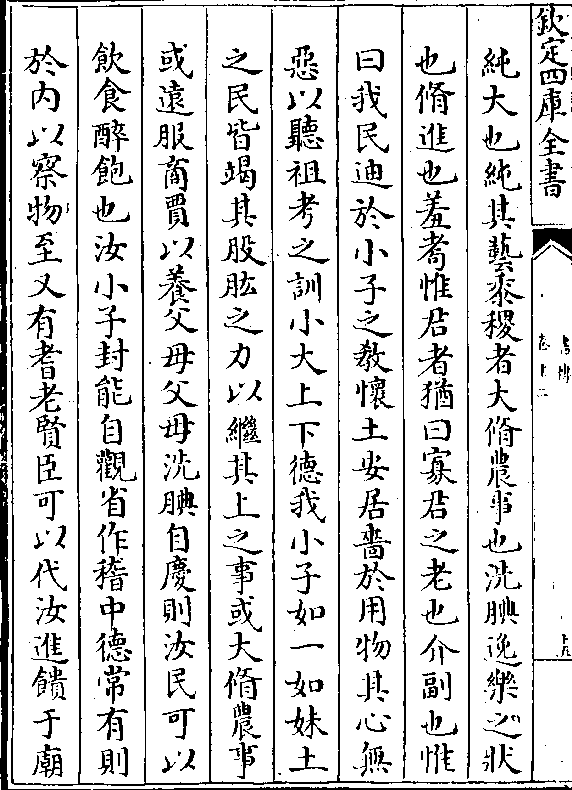 欽定四庫全書
純大也純其藝黍稷者大脩農事也洗腆逸樂之狀
也脩進也羞耇惟君者猶曰寡君之老也介副也惟
曰我民迪於小子之教懷土安居嗇於用物其心無
惡以聽祖考之訓小大上下德我小子如一如妹土
之民皆竭其股肱之力以繼其上之事或大脩農事
或遠服商賈以養父母父母洗腆自慶則汝民可以
飲食醉飽也汝小子封能自觀省作稽中德常有則
於內以察物至又有耆老賢臣可以代汝進饋于廟